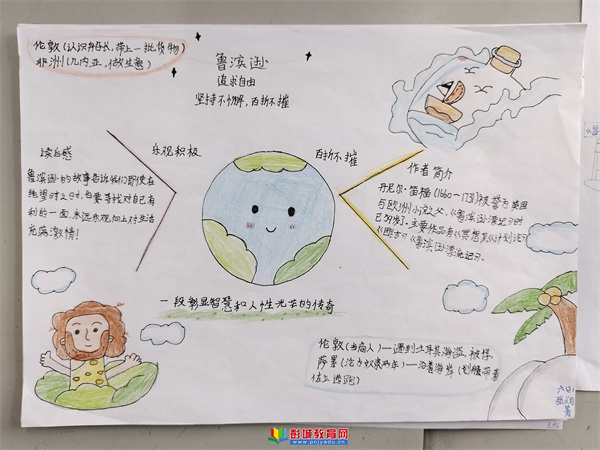 伦敦(认识船长,带上一批货物)
非洲(几内亚,做生意)
鲁滨逊
追求自由
坚持不懈,百折不摧
读后感
鲁滨逊的故事告诉我们即使在
绝望时之时,也要寻找对自己有
利的一面,永远乐观向上对生活
充满激情!
乐观积极
百折不摧
作者简介
丹尼尔·笛福(1660-1731)被誉为英国
与欧洲小说之父,《鲁滨逊漂流记》时
已59岁了.主要作品有
《鲁滨逊漂流记》.
一段彰显智慧和人性光芒的传奇
伦敦(当商人)—遇到土耳其海盗,被俘,
萨累(沦为奴隶两年)—沿着海岸(划艇带着
佐立逃跑)
彭城教育网
www.pcjyedu.cn